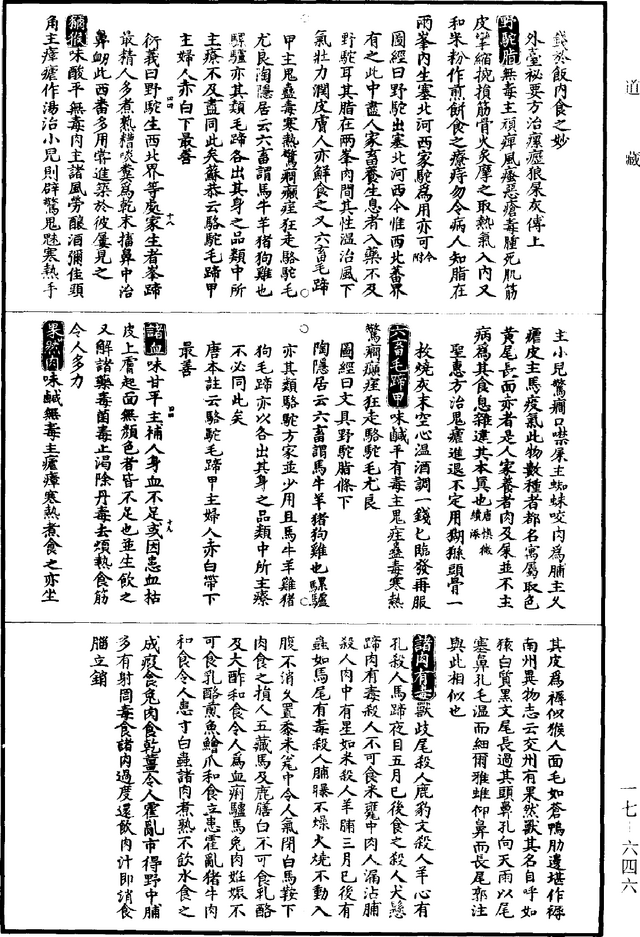 道藏
錢烝飯内食之妙
外臺祕要方治瘰癧狼屎灰傅上
野駝脂無毒主頑痺風瘙惡瘡毒腫死肌筋
皮攣縮踠損筋骨火炙摩之取熱氣入内又
和米粉作煎餅食之療痔勿令病人知脂在
兩峯内生塞北河西家駝爲用亦可今附
圖經曰野駝出塞北河西今惟西北蕃界
有之此中盡人家畜養生息者入藥不及
野駝耳其脂在兩峯肉間其性温治風下
氣壯力潤皮膚人亦鮮食之又六畜毛蹄
甲主鬼蠱毒寒熱驚癇癲痓狂走駱駝毛
尤良陶隱居云六畜謂馬牛羊猪狗雞也
騾驢亦其類毛蹄各出其身之品類中所
主療不及盡同此矣蘇恭云駱駝毛蹄甲
主婦人赤白下最善
衍義曰野駝生西北界等處家生者峯蹄
最精人多煮熟糟啖糞爲乾末搐鼻中治
鼻衂此西番多用嘗進築於彼屢見之
獼猴味酸平無毒肉主諸風勞釀酒彌佳頭
角主瘴瘧作湯治小兒則辟驚鬼魅寒熱手
主小兒驚癇口噤屎主蜘蛛咬内爲脯主久
瘧皮主馬疫氣此物數種者都名禺屬取色
黄尾長面赤者是人家養者肉及屎並不主
病爲其食息雜違其本真也唐慎微續添
聖惠方治鬼瘧進退不定用猢猻頭骨一
枚燒灰末空心温酒調一錢匕臨發再服
六畜毛蹄甲味鹹平有毒主鬼疰蠱毒寒熱
驚癇癲痓狂走駱駝毛尤良
圖經曰文具野駝脂條下
陶隱居云六畜謂馬牛羊猪狗雞也騾驢
亦其類駱駝方家並少用且馬牛羊雞猪
狗毛蹄亦以各出其身之品類中所主療
不必同此矣
唐本註云駱駝毛蹄甲主婦人赤白帶下
最善
諸血味甘平主補人身血不足或因患血枯
皮上膚起面無顏色者皆不足也並生飲之
又解諸藥毒菌毒止渴除丹毒去煩熱食筋
令人多力
果然肉味鹹無毒主瘧瘴寒熱煮食之亦坐
其皮爲褥似猴人面毛如蒼鴨肋邊堪作褥
南州異物志云交州有果然獸其名自呼如
猿白質黑文尾長過其頭鼻孔向天雨以尾
塞鼻孔毛温而細爾雅蜼仰鼻而長尾郭注
與此相似也
諸肉有毒獸歧尾殺人鹿豹文殺人羊心有
孔殺人馬蹄夜目五月已後食之殺人犬懸
蹄肉有毒殺人不可食米甕中肉人漏沾脯
殺人肉中有星如米殺人羊脯三月已後有
蟲如馬尾有毒殺人脯曝不燥火燒不動入
腹不消久置黍米瓮中令人氣閉白馬鞍下
肉食之損人五藏馬及鹿膳白不可食乳酪
及大酢和食令人爲血痢驢馬兔肉姙娠不
可食乳酪煎魚鱠爪和食立患霍亂猪牛肉
和食令人患寸白蟲諸肉煮熟不飲水食之
成瘕食兔肉食乾薑令人霍亂市得野中脯
多有射罔毒食諸内過度還飲肉汁即消食
腦立銷
一七–六四六